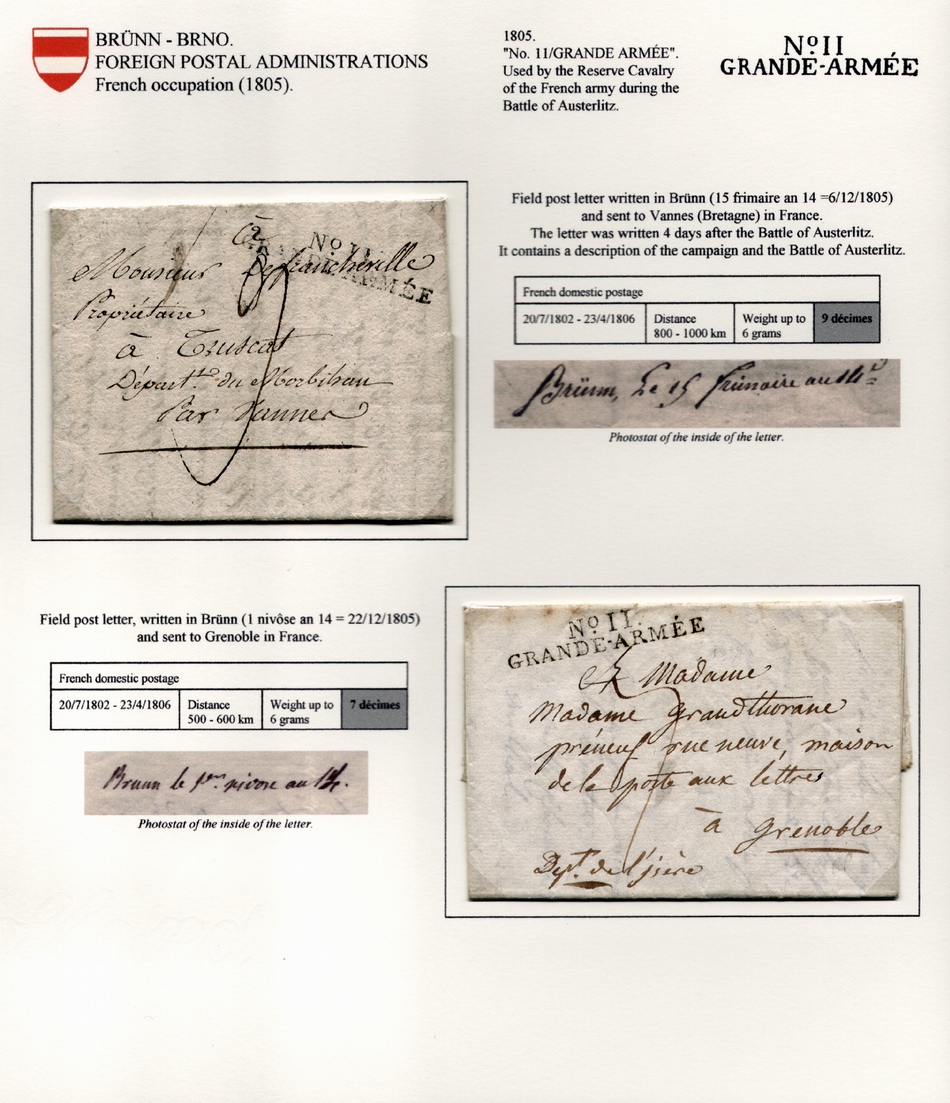 BRÜNN - BRNO.
FOREIGN POSTAL ADMINISTRATIONS
French occupation (1805).
1805.
"No. 11/GRANDE ARMÉE".
Used by the Reserve Cavalry
of the French army during the
Battle of Austerlitz.
No 11
GRANDE-ARMÉE
No 11.
GRANDE-ARMÉE
à
Monsieur Defrancheville
Propriétaire
à Truscat
Départ.t du Morbihan
Par Vannes
Field post letter written in Brünn (15 frimaire an 14 =6/12/1805)
and sent to Vannes (Bretagne) in France.
The letter was written 4 days after the Battle of Austerlitz.
It contains a description of the campaign and the Battle of Austerlitz.
French domestic postage
20/7/1802 - 23/4/1806 Distance 800 - 1000 km Weight up to 6 grams 9 décimes
Brünn, Le 15 frimaire an 14
Photostat of the inside of the letter.
Field post letter, written in Brünn (1 nivôse an 14 = 22/12/1805)
and sent to Grenoble in France.
French domestic postage
20/7/1802 - 23/4/1806 Distance 500 - 600 km Weight up to 6 grams 7 décimes
Brunn le 1er nivose an 14.
Photostat of the inside of the letter.
No 11.
GRANDE-ARMÉE
Madame
Madame Grandthorane
rue neuve, maison
de la poste aux lettres
à Grenoble
Dept. de l'isère